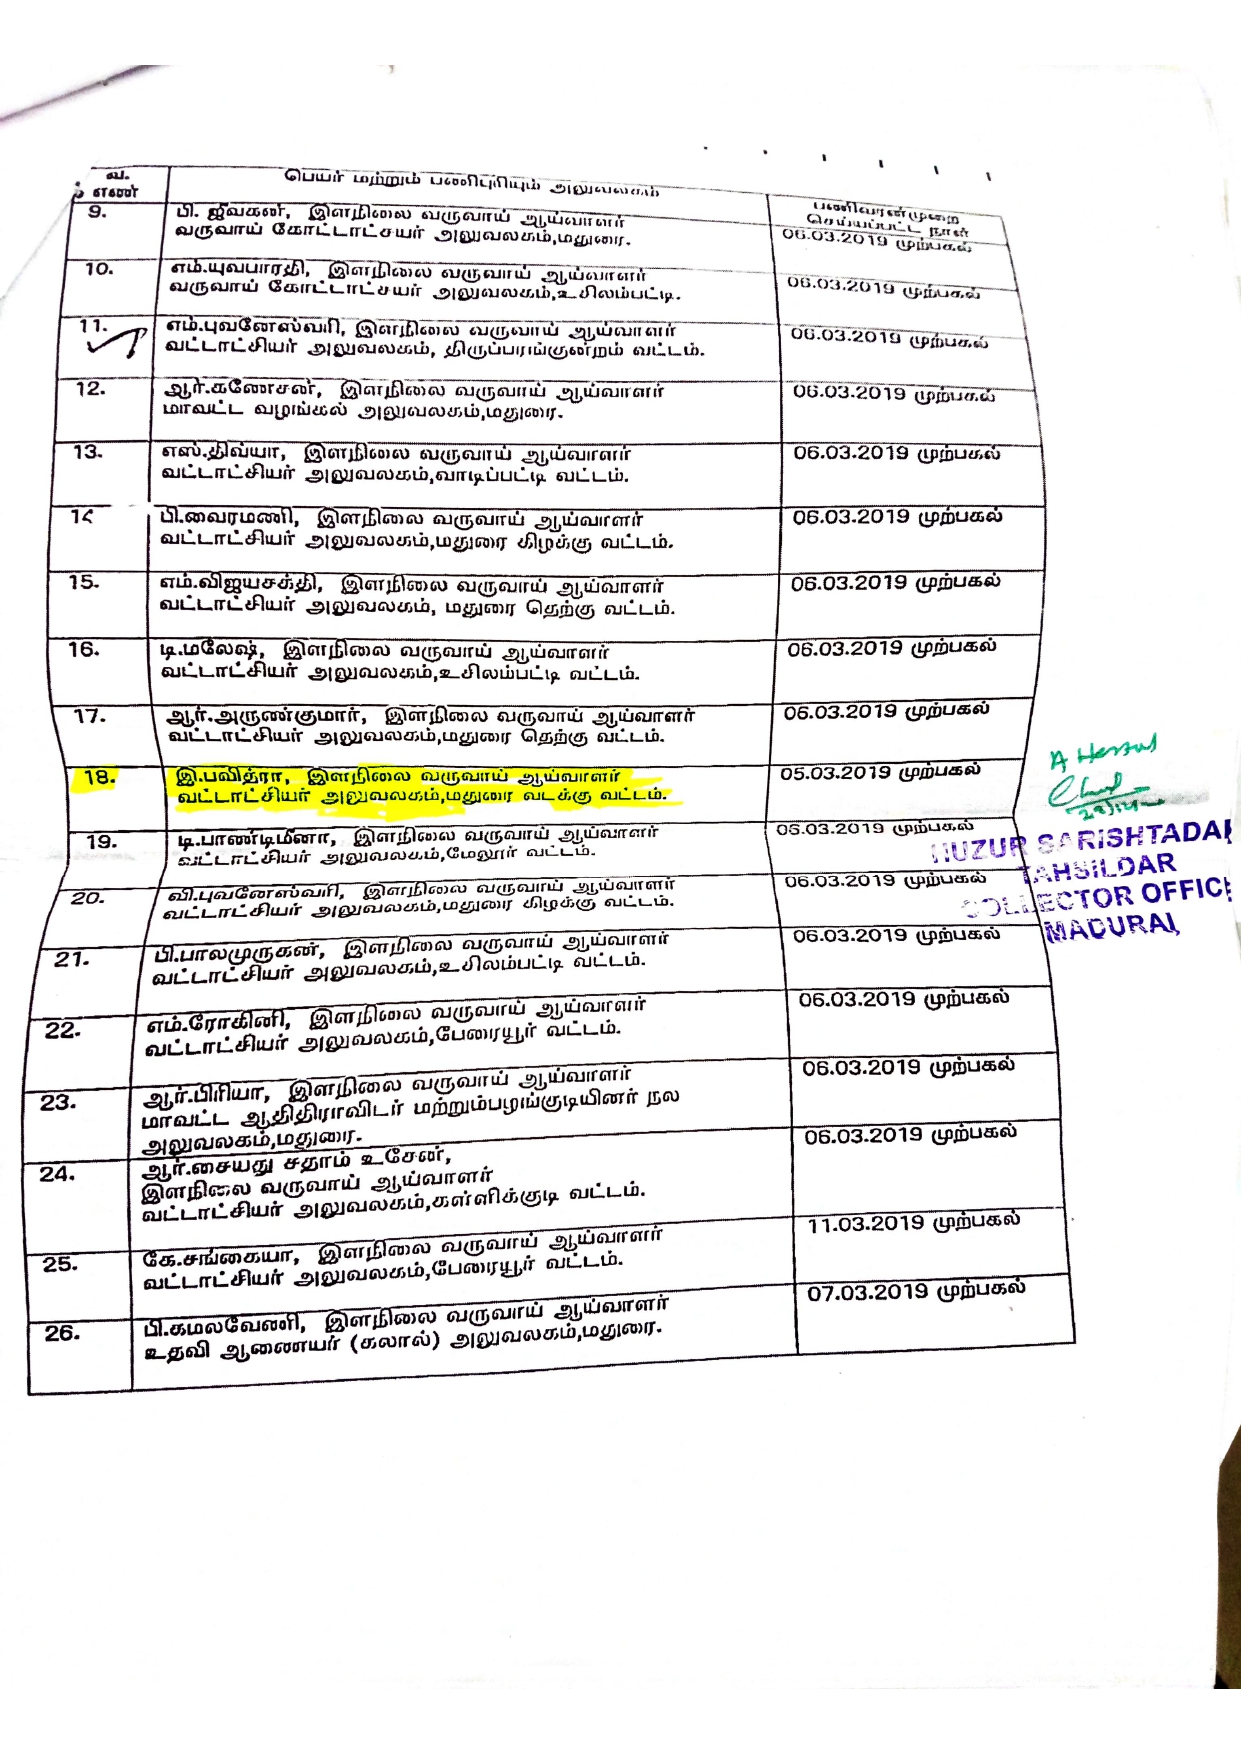 வ.
எண்
பெயர் மற்றும் பணிபுரியும் அலுவலகம்
பணிவரன்முறை
செய்யப்பட்ட நாள்
9.
பி. ஜீவகன், இளநிலை வருவாய் ஆய்வாளர்
வருவாய் கோட்டாட்சியர் அலுவலகம்,மதுரை.
06.03.2019 முற்பகல்
10.
எம்.யுவபாரதி, இளநிலை வருவாய் ஆய்வாளர்
வருவாய் கோட்டாட்சியர் அலுவலகம்,உசிலம்பட்டி.
06.03.2019 முற்பகல்
11.
எம்.புவனேஸ்வரி, இளநிலை வருவாய் ஆய்வாளர்
வட்டாட்சியர் அலுவலகம், திருப்பரங்குன்றம் வட்டம்.
06.03.2019 முற்பகல்
12.
ஆர்.கணேசன், இளநிலை வருவாய் ஆய்வாளர்
மாவட்ட வழங்கல் அலுவலகம்,மதுரை.
06.03.2019 முற்பகல்
13.
எஸ்.திவ்யா, இளநிலை வருவாய் ஆய்வாளர்
வட்டாட்சியர் அலுவலகம்,வாடிப்பட்டி வட்டம்.
06.03.2019 முற்பகல்
14
பி.வைரமணி, இளநிலை வருவாய் ஆய்வாளர்
வட்டாட்சியர் அலுவலகம்,மதுரை கிழக்கு வட்டம்.
06.03.2019 முற்பகல்
15.
எம்.விஜயசக்தி, இளநிலை வருவாய் ஆய்வாளர்
வட்டாட்சியர் அலுவலகம், மதுரை தெற்கு வட்டம்.
06.03.2019 முற்பகல்
16.
டி.மலேஷ், இளநிலை வருவாய் ஆய்வாளர்
வட்டாட்சியர் அலுவலகம்,உசிலம்பட்டி வட்டம்.
06.03.2019 முற்பகல்
17.
ஆர்.அருண்குமார், இளநிலை வருவாய் ஆய்வாளர்
வட்டாட்சியர் அலுவலகம்,மதுரை தெற்கு வட்டம்.
06.03.2019 முற்பகல்
18.
இ.பவித்ரா, இளநிலை வருவாய் ஆய்வாளர்
வட்டாட்சியர் அலுவலகம்,மதுரை வடக்கு வட்டம்.
05.03.2019 முற்பகல்
19.
டி.பாண்டிமீனா, இளநிலை வருவாய் ஆய்வாளர்
வட்டாட்சியர் அலுவலகம்,மேலூர் வட்டம்.
06.03.2019 முற்பகல்
20.
வி.புவனேஸ்வரி, இளநிலை வருவாய் ஆய்வாளர்
வட்டாட்சியர் அலுவலகம்,மதுரை கிழக்கு வட்டம்.
06.03.2019 முற்பகல்
21.
பி.பாலமுருகன், இளநிலை வருவாய் ஆய்வாளர்
வட்டாட்சியர் அலுவலகம்,உசிலம்பட்டி வட்டம்.
06.03.2019 முற்பகல்
22.
எம்.ரோகினி, இளநிலை வருவாய் ஆய்வாளர்
வட்டாட்சியர் அலுவலகம்,பேரையூர் வட்டம்.
06.03.2019 முற்பகல்
23.
ஆர்.பிரியா, இளநிலை வருவாய் ஆய்வாளர்
மாவட்ட ஆதிதிராவிடர் மற்றும்பழங்குடியினர் நல
அலுவலகம்,மதுரை.
06.03.2019 முற்பகல்
24.
ஆர்.சையது சதாம் உசேன்,
இளநிலை வருவாய் ஆய்வாளர்
வட்டாட்சியர் அலுவலகம்,கள்ளிக்குடி வட்டம்.
06.03.2019 முற்பகல்
25.
கே.சங்கையா, இளநிலை வருவாய் ஆய்வாளர்
வட்டாட்சியர் அலுவலகம்,பேரையூர் வட்டம்.
11.03.2019 முற்பகல்
26.
பி.கமலவேணி, இளநிலை வருவாய் ஆய்வாளர்
உதவி ஆணையர் (கலால்) அலுவலகம்,மதுரை.
07.03.2019 முற்பகல்
HUZUR SARISHTADAR
TAHSILDAR
COLLECTOR OFFICE
MADURAI,